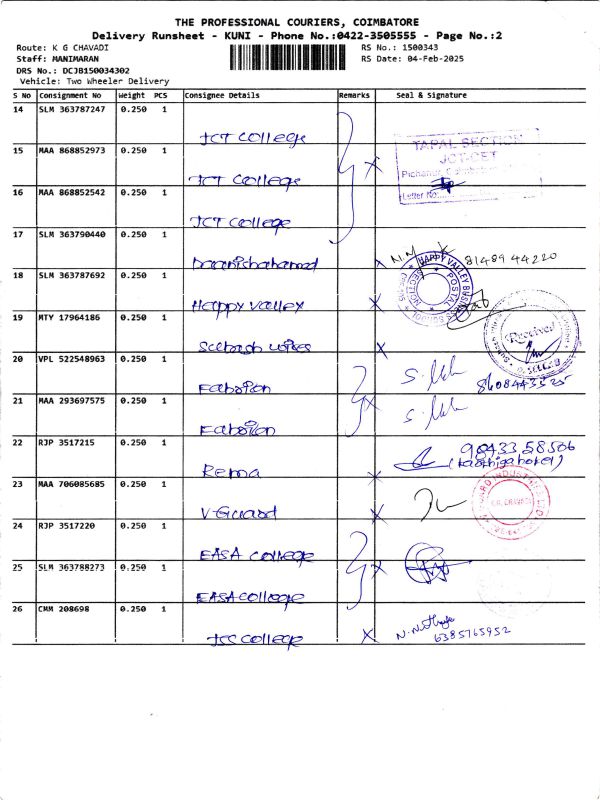 THE PROFESSIONAL COURIERS, COIMBATORE
Delivery Runsheet - KUNI - Phone No.:0422-3505555 - Page No.:2
Route: K G CHAVADI RS No.: 1500343
Staff: MANIMARAN RS Date: 04-Feb-2025
DRS No.: DCJB150034302
Vehicle: Two Wheeler Delivery
S No Consignment No Weight PCS Consignee Details Remarks Seal & Signature
14 SLM 363787247 0.250 1
JCT College
TAPAL SECTION
JCT-CET
Letter No:
15 MAA 868852973 0.250 1
JCT College
16 MAA 868852542 0.250 1
JCT College
17 SLM 363790440 0.250 1
N.M 81489 44220
18 SLM 363787692 0.250 1
Happy Valley
HAPPY VALLEY BUSINESS SCHOOL
POSTAL SECTION
19 MTY 17964186 0.250 1
Received
20 VPL 522548963 0.250 1
8608443525
21 MAA 293697575 0.250 1
22 RJP 3517215 0.250 1
Rema
90433 58506
23 MAA 706085685 0.250 1
V-Guard
24 RJP 3517220 0.250 1
EASA College
25 SLM 363788273 0.250 1
EASA College
26 CMM 208698 0.250 1
JCC College
6385765952